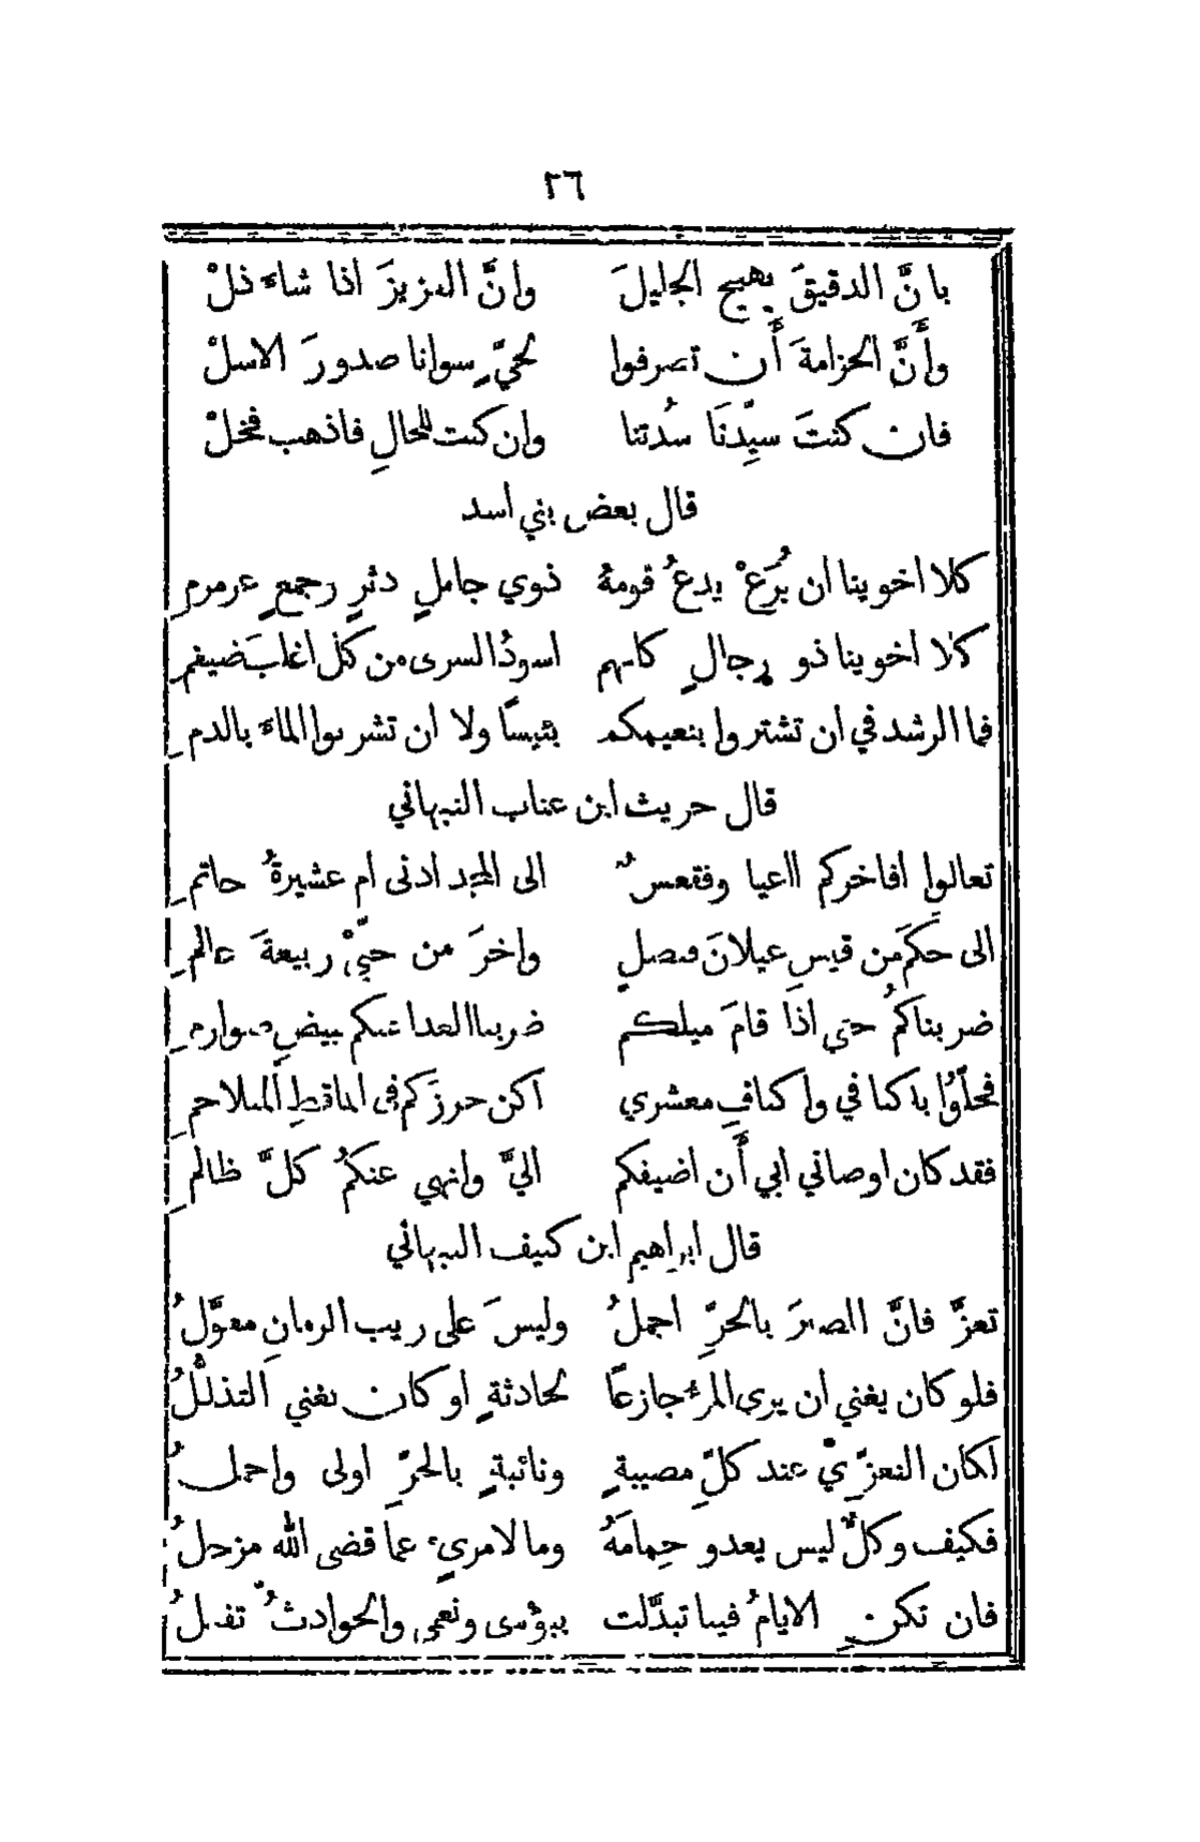 ٢٦
بانَّ الدقيقَ يهيج الجليلَ وانَّ العزيزَ اذا شاءَ ذلْ
وأنَّ الحزامةَ أَن تصرفوا لحيٍّ سوانا صدورَ الاسلْ
فان كنتَ سيِّدنَا سُدتنا وان كنت للخالِ فاذهب فخلْ
قال بعض بني اسد
كلا اخوينا ان يُرَعْ يدعُ قومهُ ذوي جاملٍ دثرٍ وجمعٍ عرمرمِ
كلا اخوينا ذو رجالٍ كانهم اسودُ السرى من كل اغلبَ ضيغمِ
فما الرشد في ان تشتروا بنعيمكم بئيسًا ولا ان تشربوا الماءَ بالدمِ
قال حريث ابن عناب النبهاني
تعالوا افاخركم ااعيا وفقعسٌ الى المجد ادنى ام عشيرةُ حاتمِ
الى حكَمٍ من قيسِ عيلانَ فيصلٍ واخرَ من حيّيْ ربيعةَ عالمِ
ضربناكمُ حتى اذا قامَ ميلكم ضربنا العدا عنكم ببيضِ صوارمِ
فحلّوا باكنافي واكنافِ معشري اكن حرزَكم في الماقطِ المتلاحمِ
فقد كان اوصاني ابي أَن اضيفكم اليَّ وانهي عنكمُ كلَّ ظالمِ
قال ابراهيم ابن كنيف النبهاني
تعزَّ فانَّ الصبرَ بالحرِّ اجملُ وليسَ على ريب الزمانِ معوَّلُ
فلو كان يغني ان يرى المرءُ جازعًا لحادثةٍ او كان يغني التذللُّ
لكان التعزّيْ عند كلِّ مصيبةٍ ونائبةٍ بالحرِّ اولى واجملُ
فكيف وكلٌّ ليس يعدو حِمامَهُ وما لامريءٍ عما قضى الله مزحلُ
فان تكنِ الايامُ فينا تبدَّلت ببؤسى ونعمى والحوادثُ تفعلُ